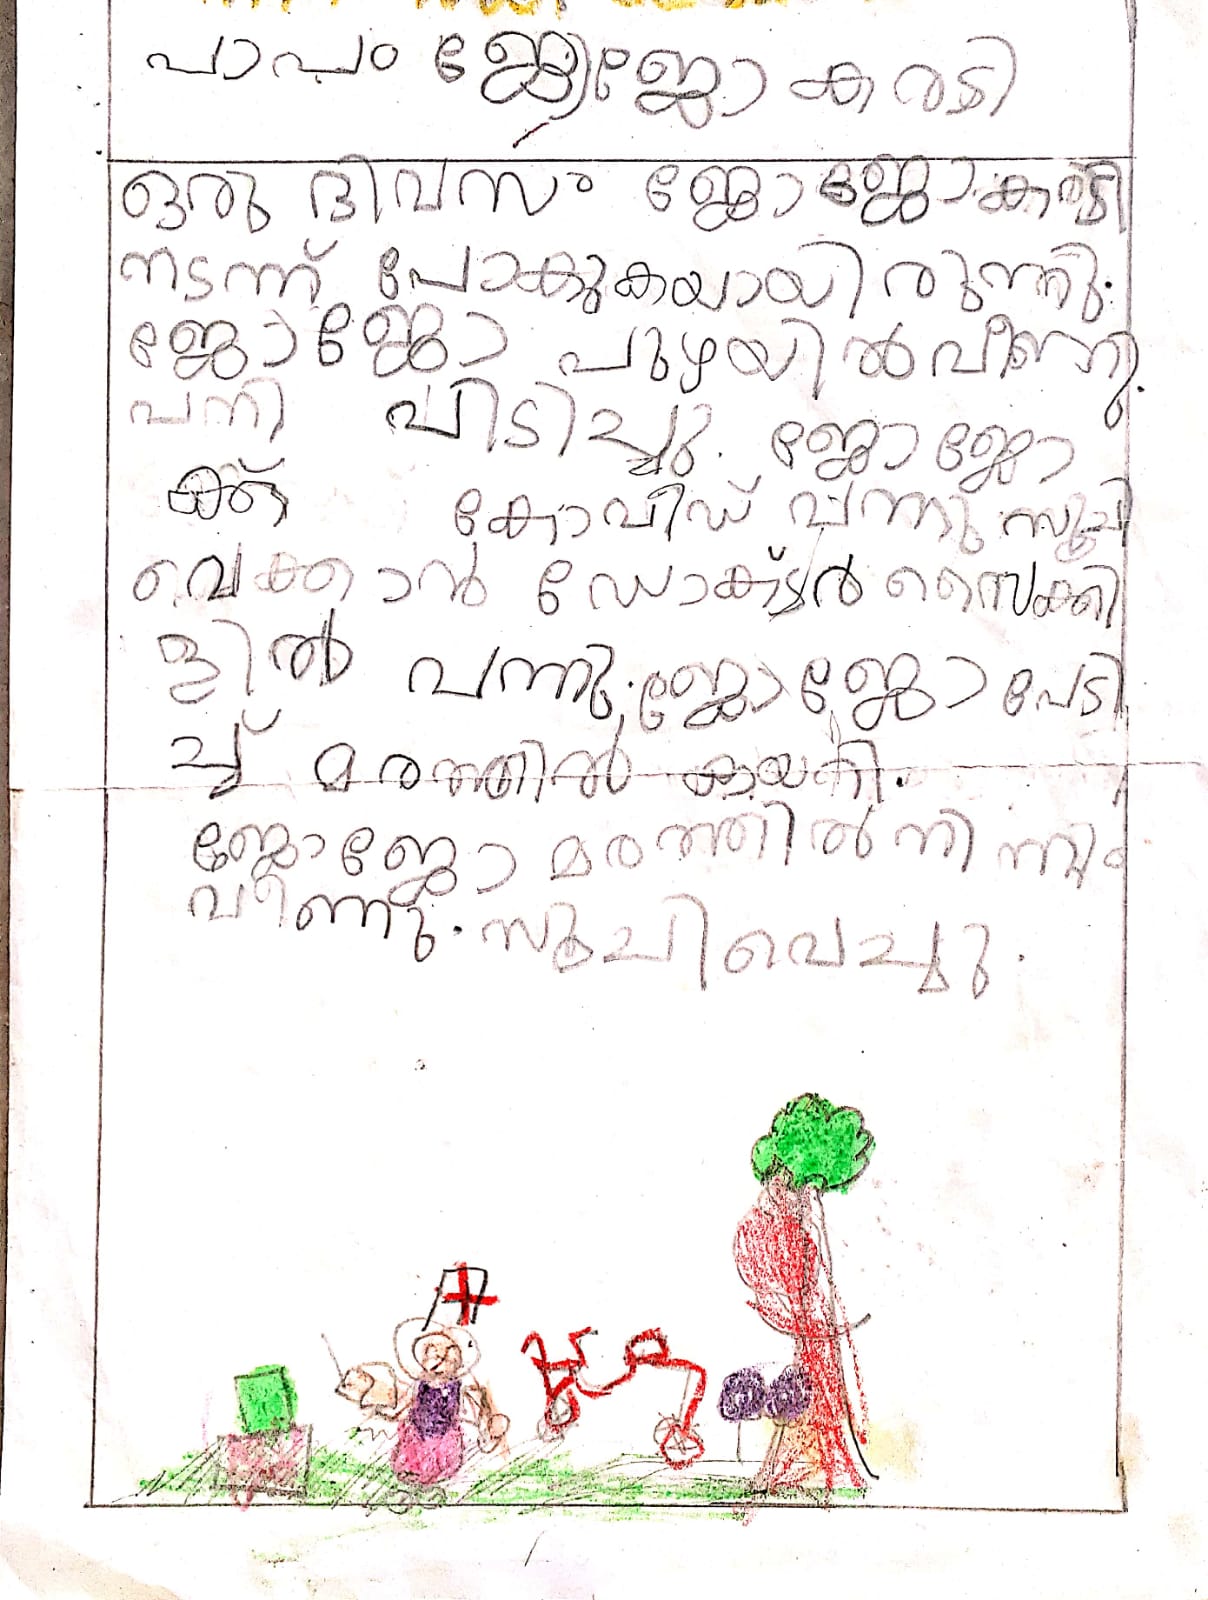 പാവം ജോജോ കരടി
ഒരു ദിവസം ജോജോ കരടി
നടന്ന് പോകുകയായിരുന്നു.
ജോജോ പുഴയിൽ വീണു.
പനി പിടിച്ചു. ജോജോ
ക്ക് കോവിഡ് വന്നു സൂചി
വെക്കാൻ ഡോക്ടർ സൈക്കി
ളിൽ വന്നു. ജോജോ പേടി
ച്ച് മരത്തിൽ കയറി.
ജോജോ മരത്തിൽ നിന്നും
വീണു. സൂചി വെച്ചു.